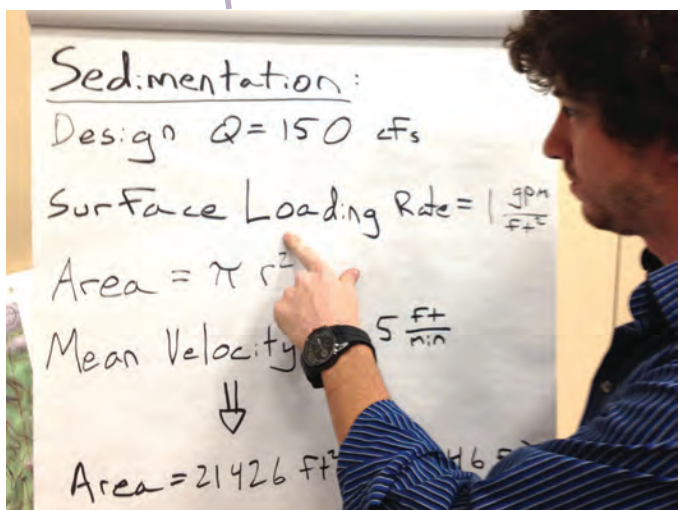 Sedimentation:
Design Q = 150 cfs
Surface Loading Rate = 1 gpm/ft²
Area = π r²
Mean Velocity 5 ft/min
⇓
Area = 21426 ft² 46 ft²